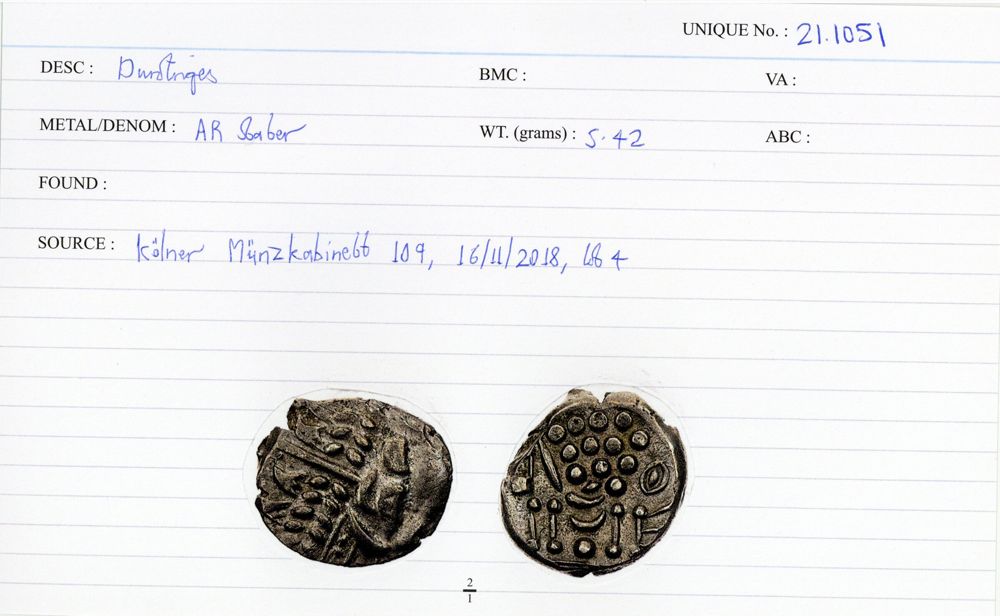 UNIQUE No. : 21.1051
DESC : Durotriges BMC : VA :
METAL/DENOM : AR Stater WT. (grams) : 5.42 ABC :
FOUND :
SOURCE : Kölner Münzkabinett 109, 16/11/2018, lot 4
2
1